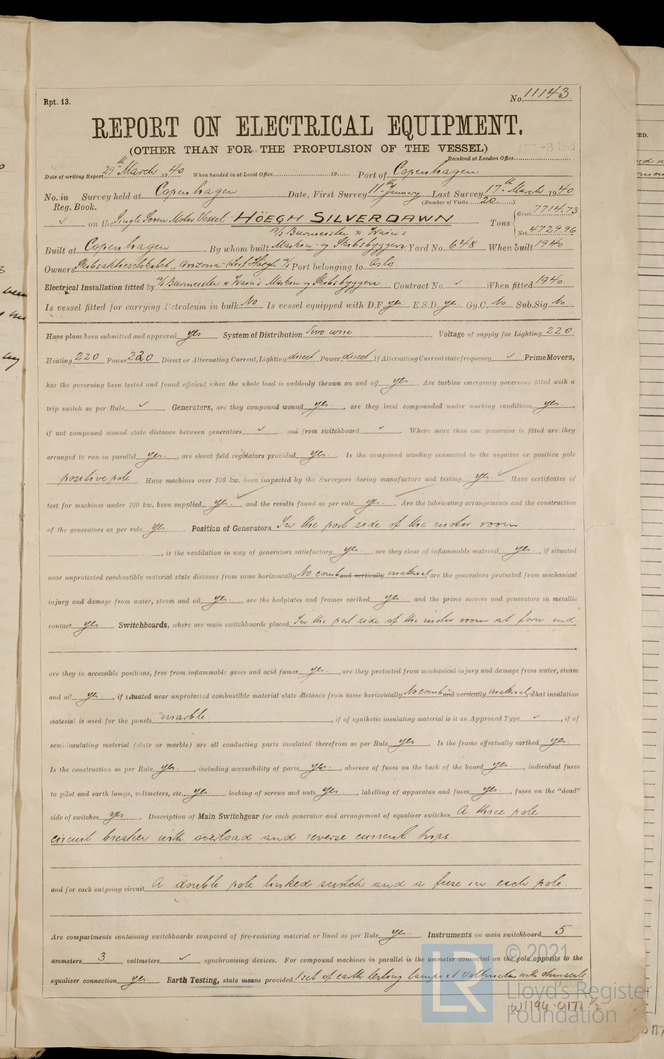 Rpt. 13.
No. 11143
REPORT ON ELECTRICAL EQUIPMENT.
(OTHER THAN FOR THE PROPULSION OF THE VESSEL)
Received at London Office
Date of writing Report 20th March 1940 When handed in at Local Office 19 Port of Copenhagen
No. in Reg. Book. Survey held at Copenhagen Date, First Survey 11th January Last Survey 17th March 1940
(Number of Visits 20)
✓ on the Single Screw Motor Vessel HÖEGH SILVERDAWN Tons Gross 7714.73 Net 4729.96
A/S Burmeister & Wain's
Built at Copenhagen By whom built Maskin- og Skibsbyggeri Yard No. 648 When built 1940
Owners Skibsaktieselskabet Arizona Leif Höegh Port belonging to Oslo
Electrical Installation fitted by A/S Burmeister & Wain's Maskin og Skibsbyggeri Contract No. ✓ When fitted 1940
Is vessel fitted for carrying Petroleum in bulk No Is vessel equipped with D.F. yes E.S.D. yes Gy.C. No Sub.Sig. No
Have plans been submitted and approved yes System of Distribution Two wire Voltage of supply for Lighting 220
Heating 220 Power 220 Direct or Alternating Current, Lighting direct Power direct If Alternating Current state frequency ✓ Prime Movers,
has the governing been tested and found efficient when the whole load is suddenly thrown on and off yes Are turbine emergency governors fitted with a
trip switch as per Rule ✓ Generators, are they compound wound yes, are they level compounded under working conditions yes,
if not compound wound state distance between generators ✓ and from switchboard ✓ Where more than one generator is fitted are they
arranged to run in parallel yes, are shunt field regulators provided yes Is the compound winding connected to the negative or positive pole
positive pole Have machines over 100 kw. been inspected by the Surveyors during manufacture and testing yes Have certificates of
test for machines under 100 kw. been supplied yes and the results found as per rule yes Are the lubricating arrangements and the construction
of the generators as per rule yes Position of Generators In the port side of the motor room
, is the ventilation in way of generators satisfactory yes are they clear of inflammable material yes, if situated
near unprotected combustible material state distance from same horizontally No comb. and vertically material are the generators protected from mechanical
injury and damage from water, steam and oil yes, are the bedplates and frames earthed yes and the prime movers and generators in metallic
contact yes Switchboards, where are main switchboards placed In the port side of the motor room at fore end
are they in accessible positions, free from inflammable gases and acid fumes yes, are they protected from mechanical injury and damage from water, steam
and oil yes, if situated near unprotected combustible material state distance from same horizontally No comb. and vertically material, what insulation
material is used for the panels marble, if of synthetic insulating material is it an Approved Type ✓, if of
semi-insulating material (slate or marble) are all conducting parts insulated therefrom as per Rule yes Is the frame effectually earthed yes
Is the construction as per Rule yes, including accessibility of parts yes, absence of fuses on the back of the board yes, individual fuses
to pilot and earth lamps, voltmeters, etc., yes locking of screws and nuts yes, labelling of apparatus and fuses yes, fuses on the "dead"
side of switches yes Description of Main Switchgear for each generator and arrangement of equaliser switches A three pole
circuit breaker with overload and reverse current trips.
and for each outgoing circuit A double pole linked switch and a fuse in each pole.
Are compartments containing switchboards composed of fire-resisting material or lined as per Rule yes Instruments on main switchboard 5
ammeters 3 voltmeters ✓ synchronising devices. For compound machines in parallel is the ammeter connected on the pole opposite to the
equaliser connection yes Earth Testing, state means provided 1 set of earth testing lamps & voltmeter with
© 2021
LR Lloyd's Register
Foundation
W1194-0171 ½